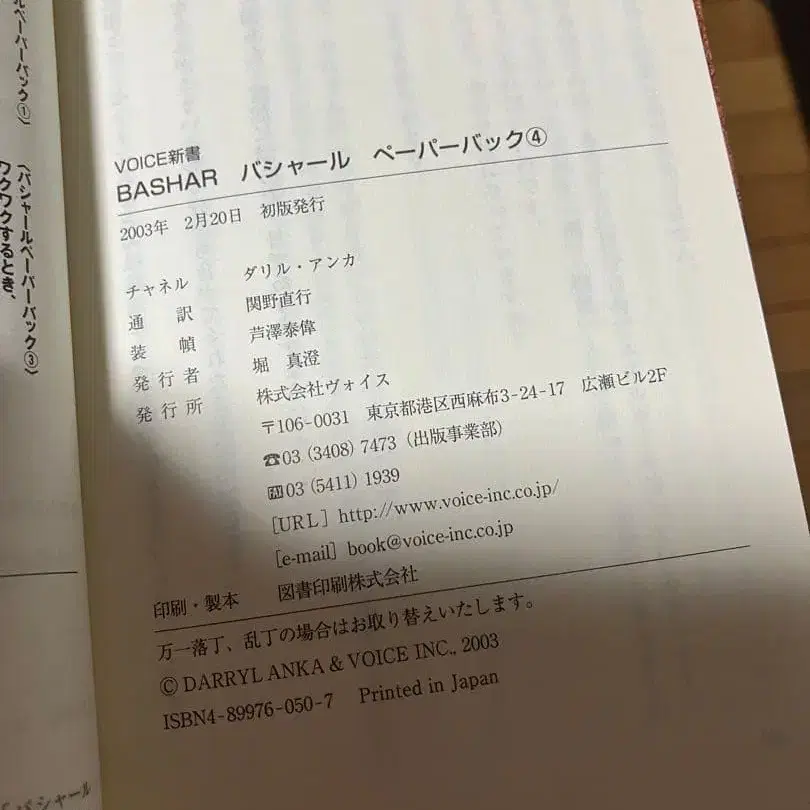 ルペーパーバック①〉
〈バシャールペーパーバック③〉
ワクワクするとき、
VOICE新書
BASHAR バシャール ペーパーバック④
2003年 2月20日 初版発行
チャネル ダリル・アンカ
通訳 関野直行
装幀 芦澤泰偉
発行者 堀 真澄
発行所 株式会社ヴォイス
〒106-0031 東京都港区西麻布3-24-17 広瀬ビル2F
☎03 (3408) 7473 (出版事業部)
FAX 03 (5411) 1939
[URL] http://www.voice-inc.co.jp/
[e-mail] book@voice-inc.co.jp
印刷・製本 図書印刷株式会社
万一落丁、乱丁の場合はお取り替えいたします。
© DARRYL ANKA & VOICE INC., 2003
ISBN4-89976-050-7 Printed in Japan
バシャール